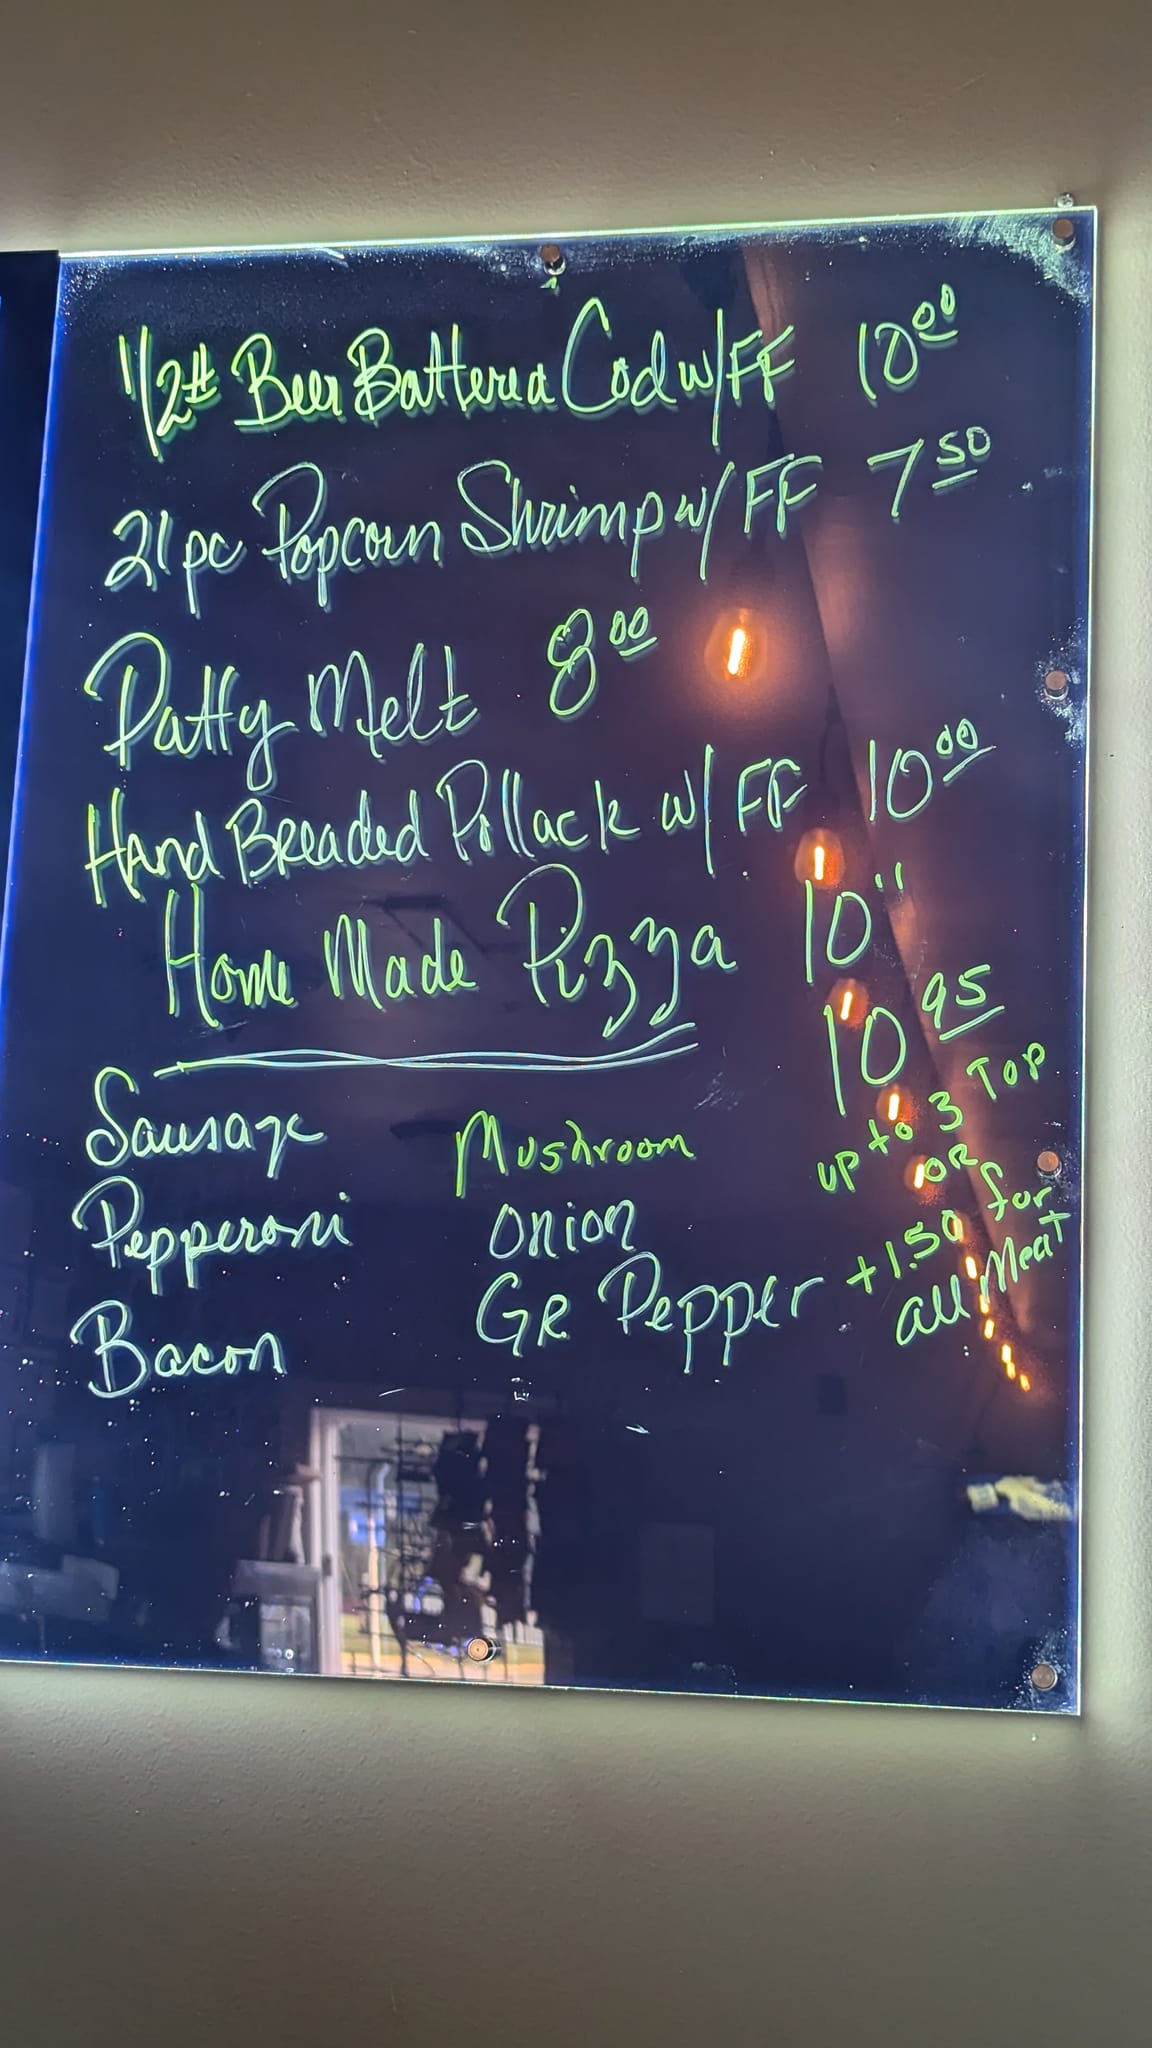 1/2# Beer Battered Cod w/FF 10 00
21 pc Popcorn Shrimp w/ FF 7 50
Patty Melt 8 00
Hand Breaded Pollack w/ FF 10 00
Home Made Pizza 10"
10 95
up to 3 Top
OR
+1.50 for
all Meat
Sausage
Pepperoni
Bacon
Mushroom
Onion
GR Pepper